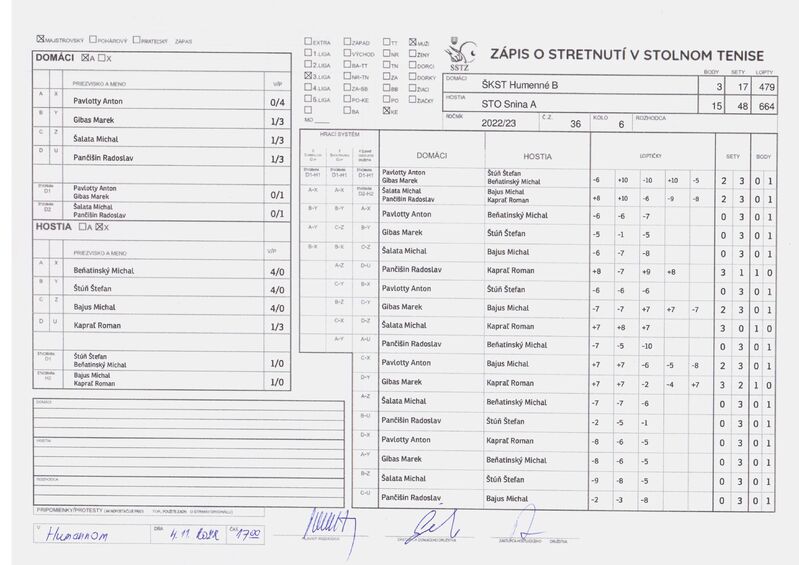 MAJSTROVSKÝ POHÁROVÝ PRIATEĽSKÝ ZÁPAS
DOMÁCI A X
PRIEZVISKO A MENO V/P
A X Pavlotty Anton 0/4
B Y Gibas Marek 1/3
C Z Šalata Michal 1/3
D U Pančišin Radoslav 1/3
D1 Pavlotty Anton
Gibas Marek 0/1
D2 Šalata Michal
Pančišin Radoslav 0/1
HOSTIA A X
PRIEZVISKO A MENO V/P
A X Beňatinský Michal 4/0
B Y Štúň Štefan 4/0
C Z Bajus Michal 4/0
D U Kapraľ Roman 1/3
Štúň Štefan
Beňatinský Michal 1/0
Bajus Michal
Kapraľ Roman 1/0
DOMÁCI
HOSTIA
ROZHODCA
PRIPOMIENKY/PROTESTY
V Humennom DŇA 4.11. ČAS 17.00
EXTRA ZÁPAD TT MUŽI
1.LIGA VÝCHOD NR ŽENY
2.LIGA BA-TT TN DORCI
3.LIGA NR-TN ZA DORKY
4.LIGA ZA-BB BB ŽIACI
5.LIGA PO-KE PO ŽIAČKY
BA KE
MO
SSTZ
ZÁPIS O STRETNUTÍ V STOLNOM TENISE
BODY SETY LOPTY
DOMÁCI ŠKST Humenné B 3 17 479
HOSTIA STO Snina A 15 48 664
ROČNÍK 2022/23 Č.Z. 36 KOLO 6 ROZHODCA
HRACÍ SYSTÉM DOMÁCI HOSTIA LOPTIČKY SETY BODY
D1-H1 D1-H1 D1-H1 Pavlotty Anton Štúň Štefan
Gibas Marek Beňatinský Michal -6 +10 -10 +10 -5 2 3 0 1
A-X A-X D2-H2 Šalata Michal Bajus Michal
Pančišin Radoslav Kapraľ Roman +8 +10 -6 -9 -8 2 3 0 1
B-Y B-Y A-X Pavlotty Anton Beňatinský Michal -6 -6 -7 0 3 0 1
A-Y C-Z B-Y Gibas Marek Štúň Štefan -5 -1 -5 0 3 0 1
B-X B-X C-Z Šalata Michal Bajus Michal -6 -7 -8 0 3 0 1
A-Z D-U Pančišin Radoslav Kapraľ Roman +8 -7 +9 +8 3 1 1 0
C-Y B-X Pavlotty Anton Štúň Štefan -6 -6 -6 0 3 0 1
B-Z C-Y Gibas Marek Bajus Michal -7 -7 +7 +7 -7 2 3 0 1
C-X D-Z Šalata Michal Kapraľ Roman +7 +8 +7 3 0 1 0
A-Y A-U Pančišin Radoslav Beňatinský Michal -7 -5 -10 0 3 0 1
C-X Pavlotty Anton Bajus Michal +7 +7 -6 -5 -8 2 3 0 1
D-Y Gibas Marek Kapraľ Roman +7 +7 -2 -4 +7 3 2 1 0
A-Z Šalata Michal Beňatinský Michal -7 -7 -6 0 3 0 1
B-U Pančišin Radoslav Štúň Štefan -2 -5 -1 0 3 0 1
D-X Pavlotty Anton Kapraľ Roman -8 -6 -5 0 3 0 1
A-Y Gibas Marek Beňatinský Michal -8 -6 -5 0 3 0 1
B-Z Šalata Michal Štúň Štefan -9 -8 -5 0 3 0 1
C-U Pančišin Radoslav Bajus Michal -2 -3 -8 0 3 0 1